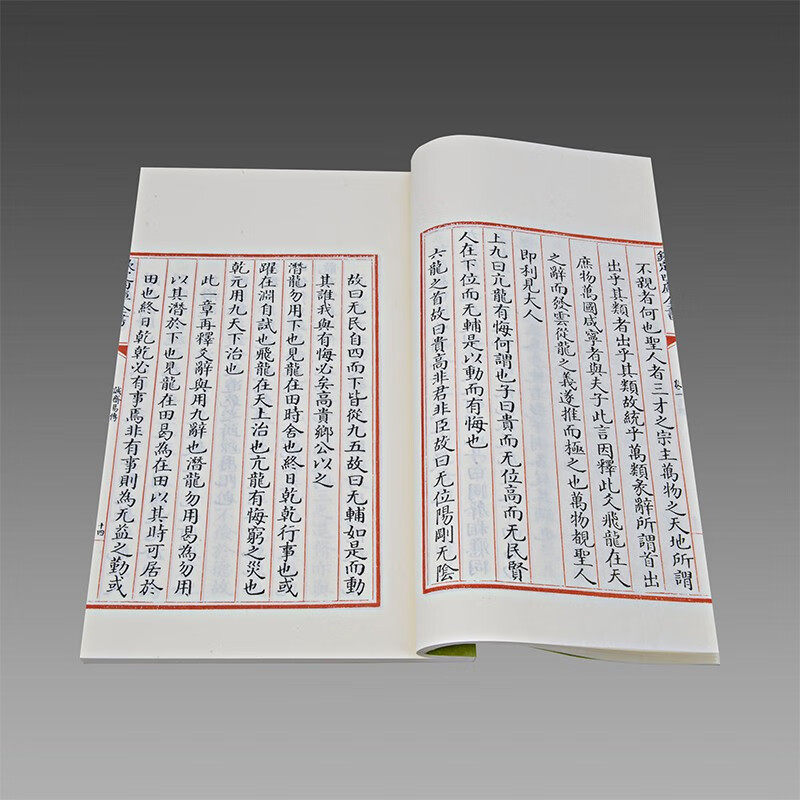 不覩者何也聖人者三才之宗主萬物之天地所謂
出乎其類者出乎其類故統乎萬類彖辭所謂首出
庶物萬國咸寧者與夫子此言因釋此爻飛龍在天
之辭而發雲從龍之義遂推而極之也萬物覩聖人
即利見大人
上九曰亢龍有悔何謂也子曰貴而无位高而无民賢
人在下位而无輔是以動而有悔也
六龍之首故曰貴高非君非臣故曰无位陽剛无陰
故曰无民自四而下皆從九五故曰无輔如是而動
其誰我與有悔必矣高貴鄉公以之
潛龍勿用下也見龍在田時舍也終日乾乾行事也或
躍在淵自試也飛龍在天上治也亢龍有悔窮之災也
乾元用九天下治也
此一章再釋爻辭與用九辭也潛龍勿用曷為勿用
以其潛於下也見龍在田曷為在田以其時可居於
田也終日乾乾必有事焉非有事則為无益之勤或
誠齋易傳
十四